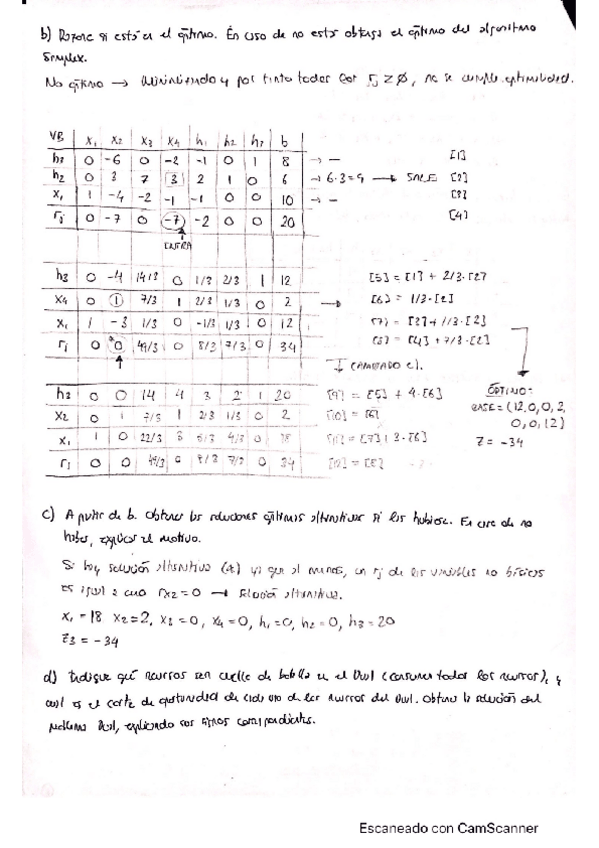 b) Razone si está en el óptimo. En caso de no estar obtenga el óptimo del algoritmo
Simplex.
No óptimo → Minimizando y por tanto todos los rj ≥ 0, no se cumple optimalidad.
VB x1 x2 x3 x4 h1 h2 h3 b
h3 0 -6 0 -2 -1 0 1 8 → – [1]
h2 0 3 7 3 2 1 0 6 → 6·3=9 → SALE [2]
x1 1 -4 -2 -1 -1 0 0 10 → – [3]
rj 0 -7 0 -7 -2 0 0 20 [4]
ENTRA
h3 0 -4 14/3 0 1/3 2/3 1 12 [5] = [1] + 2/3·[2]
x4 0 1 7/3 1 2/3 1/3 0 2 → [6] = 1/3·[2]
x1 1 -3 1/3 0 -1/3 1/3 0 12 [7] = [3] + 1/3·[2]
rj 0 0 49/3 0 8/3 7/3 0 34 [8] = [4] + 7/3·[2]
↓ (APARTADO c).
h3 0 0 14 4 3 2 1 20 [9] = [5] + 4·[6]
x2 0 1 7/3 1 2/3 1/3 0 2 [10] = [6]
x1 1 0 22/3 3 5/3 4/3 0 18 [11] = [7] + 3·[6]
rj 0 0 49/3 0 8/3 7/3 0 34 [12] = [8]
ÓPTIMO:
BASE = (12,0,0,2,
0,0,12)
Z = -34
c) A partir de b. Obtener las soluciones óptimas alternativas si las hubiese. En caso de no
haber, explicar el motivo.
Si hay solución alternativa ya que al menos, un rj de las variables no básicas
es igual a cero rx2 = 0 → Solución alternativa.
x1 = 18 x2 = 2, x3 = 0, x4 = 0, h1 = 0, h2 = 0, h3 = 20
= -34
d) Indique qué recursos son cuello de botella en el Dual (consumen todos los recursos), y
cual es el coste de oportunidad de cada uno de los recursos del Dual. Obtenga la solución del
problema Dual, explicando sus signos correspondientes.
Escaneado con CamScanner